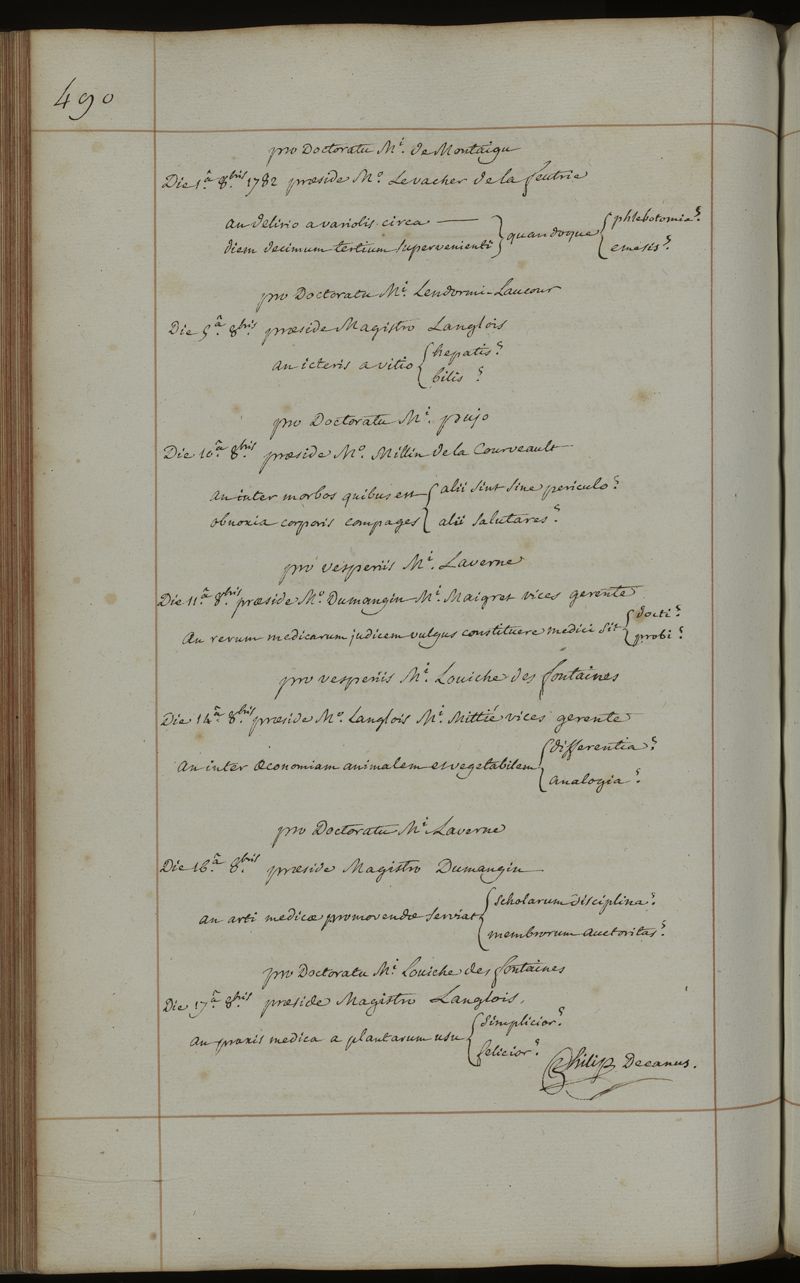 490
pro Doctoratu Mi. de Montaigu
Die 1ª. 8bris. 1782 præside Mo. Levacher de la feutrie
an delirio a variolis circa — } quandoque { phlebotomia?
diem decimum tertium supervenienti } { emesis?
pro Doctoratu Mi. Lendormi-Laucour
Die 9ª. 8bris. præside Magistro Langlois
an icteris a vitio { hepatis?
{ bilis ?
pro Doctoratu Mi. pujo
Die 10ª. 8bris. præside Mo. Millin de la Courveault
an inter morbos quibus est { alii sint sine periculo?
obnoxia corporis compages { alii salutares?
pro vesperiis Mi. Laverne
Die 11ª. 8bris. præside Mo. Dumangin Mi. Maigret vices gerente
An rerum medicarum judicem vulgus constituere medici sit { docti?
{ probi?
pro vesperiis Mi. Louiche des fontaines
Die 14ª. 8bris. præside Mo. Langlois Mi. Mittié vices gerente
an inter œconomiam animalem et vegetabilem { differentia?
{ analogia?
pro Doctoratu Mi. Laverne
Die 16ª. 8bris. præside Magistro Dumangin
an arti medicæ promovendæ serviat { scholarum disciplina?
{ membrorum auctoritas?
pro Doctoratu Mi. Louiche des fontaines
Die 17ª. 8bris. præside Magistro Langlois,
an praxis medica a plantarum usu { simplicior?
{ felicior?
Philip Decanus.